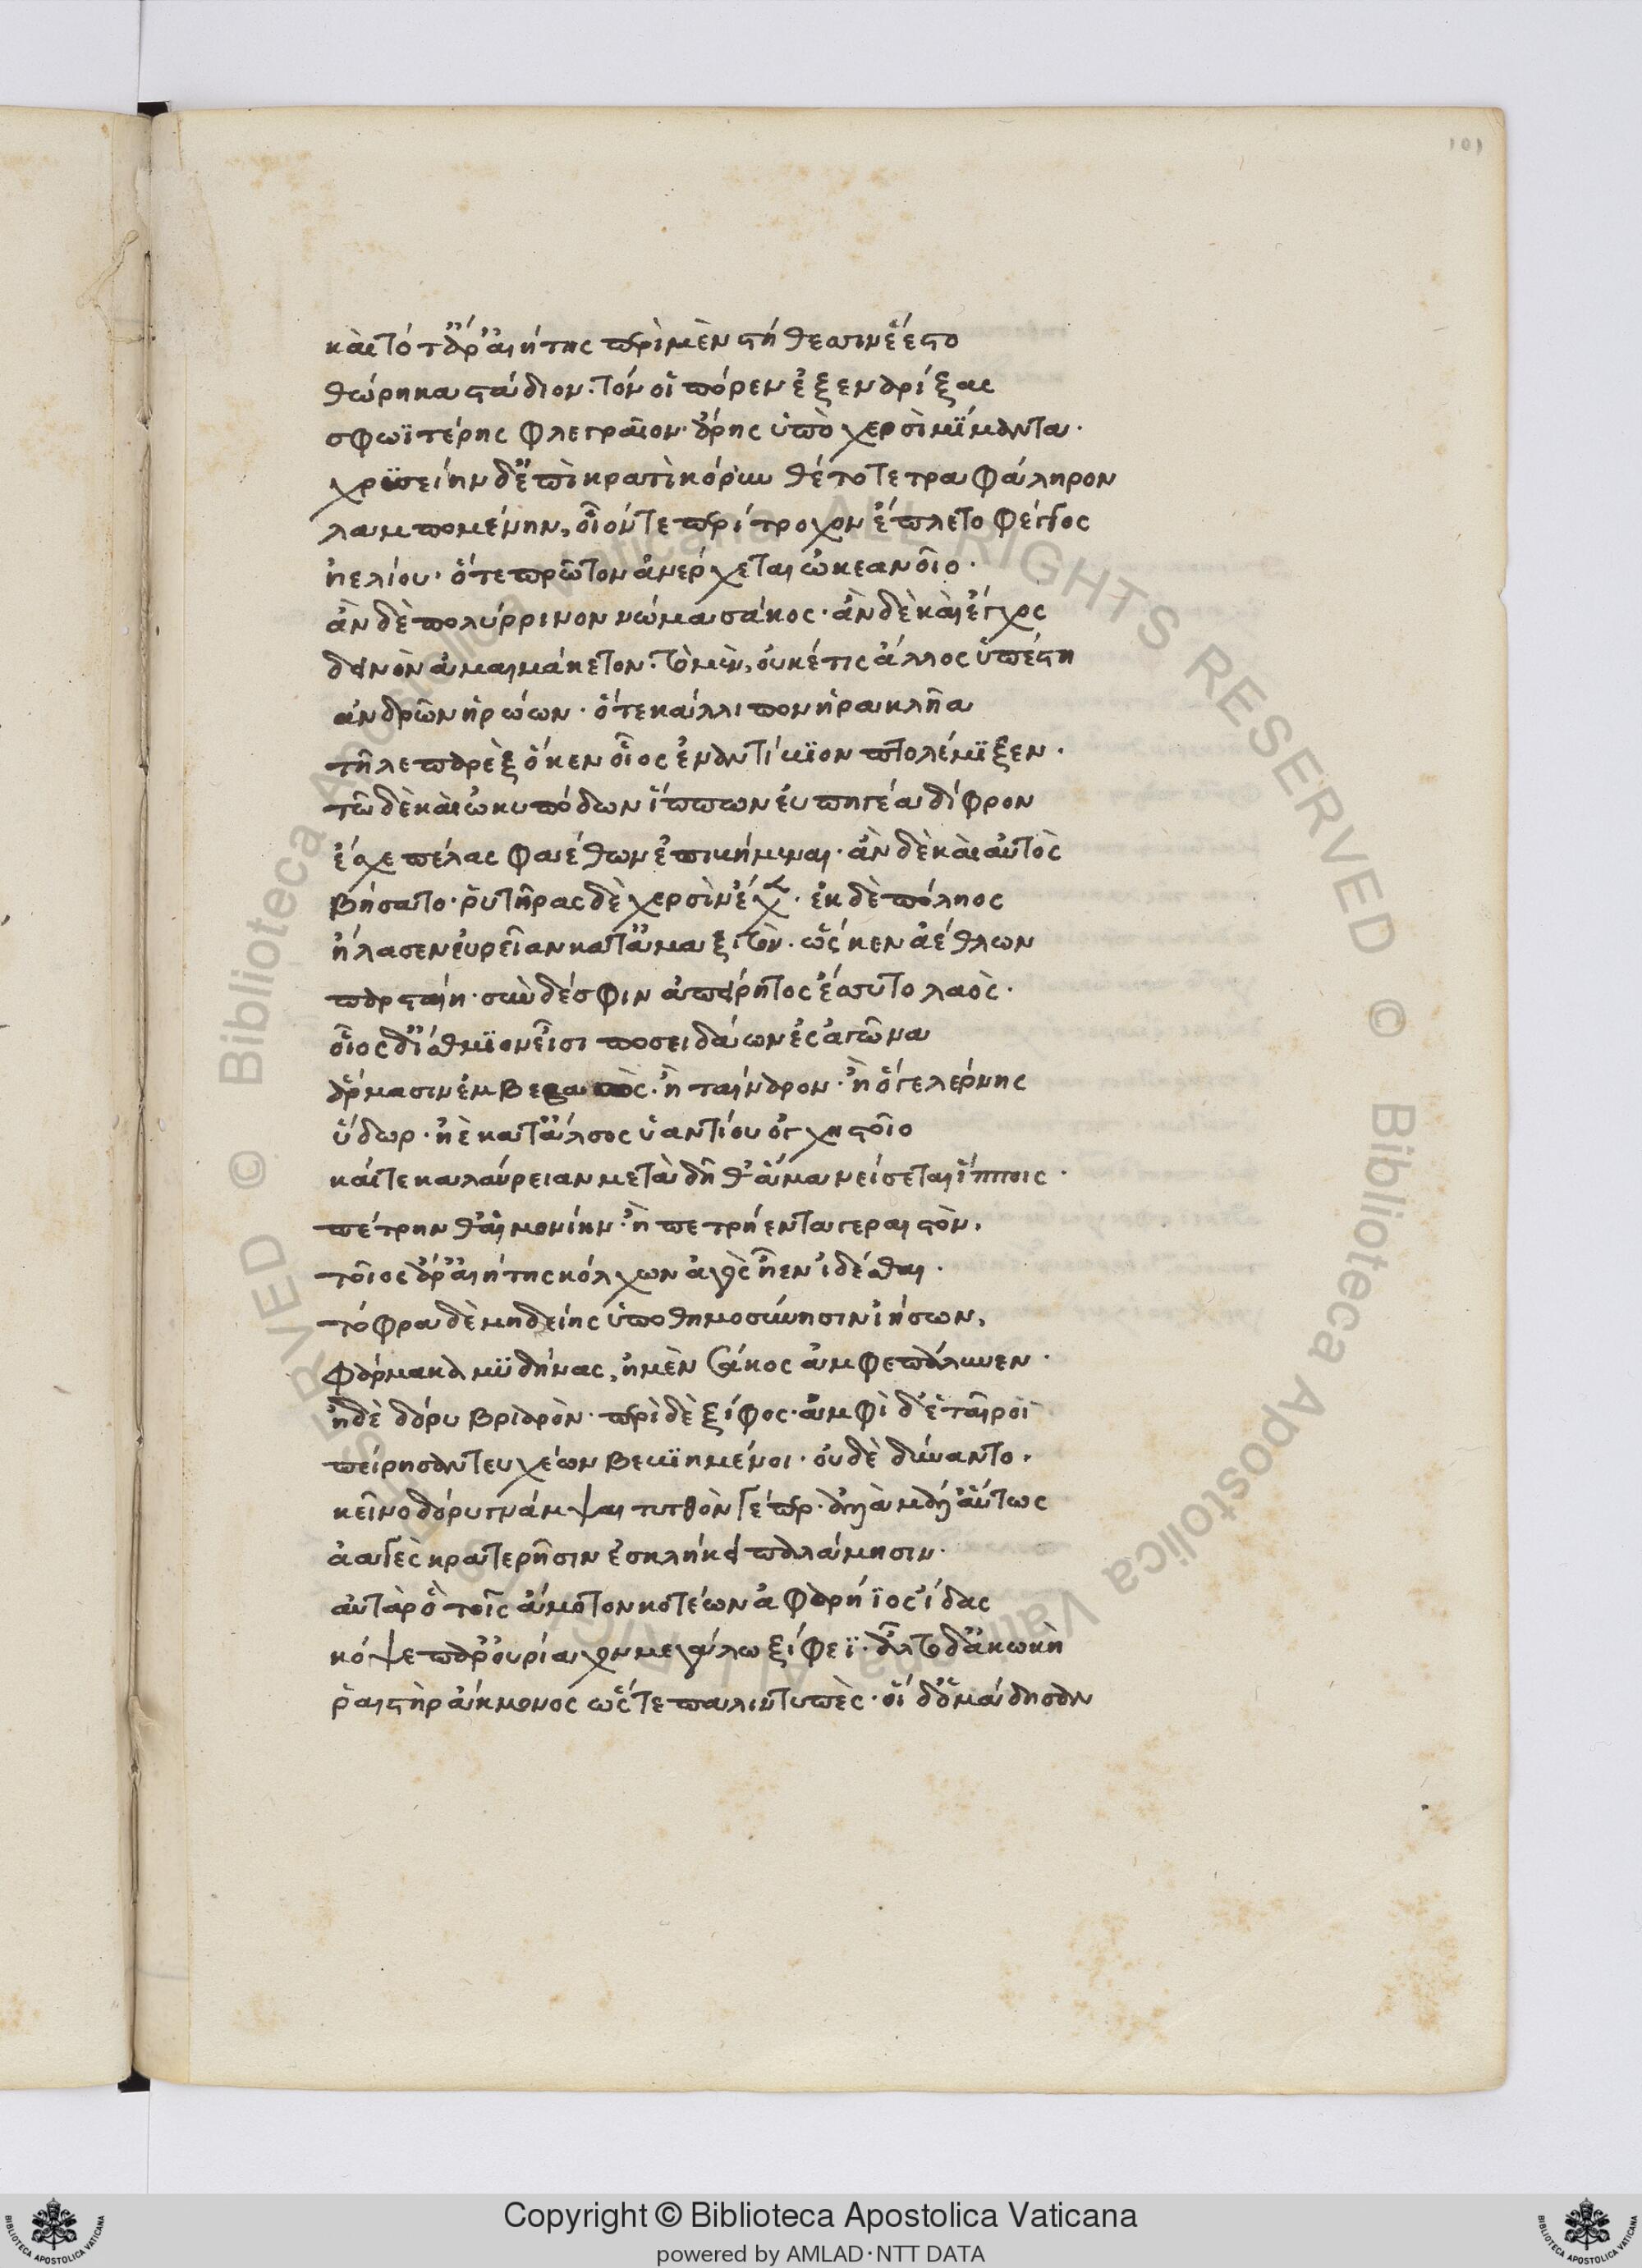 101
καὶ τότ' ἄρ' αἰήτης περὶ μὲν στήθεσσιν ἕεστο
θώρηκα στάδιον· τόν οἱ πόρεν ἐξεναρίξας
σφωϊτέρης φλεγραῖον ἄρης ὑπὸ χερσὶ μίμαντα·
χρυσείην δ' ἐπὶ κρατὶ κόρυν θέτο τετραφάληρον
λαμπομένην, οἷόν τε περίτροχον ἔπλετο φέγγος
ἠελίου· ὅτε πρῶτον ἀνέρχεται ὠκεανοῖο·
ἂν δὲ πολύρρινον νώμα σάκος· ἂν δὲ καὶ ἔγχος
δεινὸν ἀμαιμάκετον· τὸ μὲν, οὐκέτις ἄλλος ὑπέστη
ἀνδρῶν ἡρώων· ὅτε κάλλιπον ἡρακλῆα
τῆλε παρὲξ ὅ κεν οἶος ἐναντίβιον πτολέμιξεν·
τῶ δὲ καὶ ὠκυπόδων ἵππων ἐυπηγέα δίφρον
ἔσχε πέλας φαέθων ἐπιβήμεναι· ἂν δὲ καὶ αὐτὸς
βήσατο· ῥυτῆρας δὲ χερσὶν ἔχεν· ἐκ δὲ πόληος
ἤλασεν εὐρεῖαν κατ' ἀμαξιτὸν· ὥς κεν ἀέθλων
παρσταίη· σὺν δέ σφιν ἀπείρητος ἔσσυτο λαὸς·
οἷος δ' ἴσθμιον εἶσι ποσειδάων ἐς ἀγῶνα
ἅρμασιν ἐμβεβαὼς· ἢ ταίναρον· ἢ ὅγε λέρνης
ὕδωρ· ἠὲ κατ' ἄλσος ὑαντίου ὀγχηστοῖο
καί τε καλαύρειαν μετὰ δὴ θ' ἅμα νείσεται ἵπποις·
πέτρην θ' αἱμονίην· ἢ πετρήεντα γεραιστὸν.
τοῖος ἄρ' αἰήτης κόλχων ἀγὸς ἦεν ἰδέσθαι·
τόφρα δὲ μηδείης ὑποθημοσύνῃσιν ἰήσων,
φάρμακα μυδήνας, ἠμὲν σάκος ἀμφεπάλυνεν·
ἠδὲ δόρυ βριαρὸν· περὶ δὲ ξίφος· ἀμφὶ δ' ἑταῖροι
πείρησαν τευχέων βεβιημένοι· οὐδὲ δύναντο.
κεῖνο δόρυ γνάμψαι τυτθὸν γέ περ·
ἀαγὲς κρατερῆσιν ἐσκλήκει παλάμησιν·
αὐτὰρ ὁ τοῖς ἄμοτον κοτέων ἀφαρήϊος ἴδας
κόψε παρ' οὐρίαχον μεγάλω ξίφεϊ· ἆλτο δ' ἀκωκὴ
ῥαιστὴρ ἄκμονος ὥς τε παλιντυπὲς· οἱ δ' ὁμάδησαν
Copyright © Biblioteca Apostolica Vaticana
powered by AMLAD·NTT DATA
© Biblioteca Apostolica Vaticana ALL RIGHTS RESERVED
© Biblioteca Apostolica Vaticana ALL RIGHTS RESERVED
BIBLIOTECA APOSTOLICA VATICANA
BIBLIOTECA APOSTOLICA VATICANA